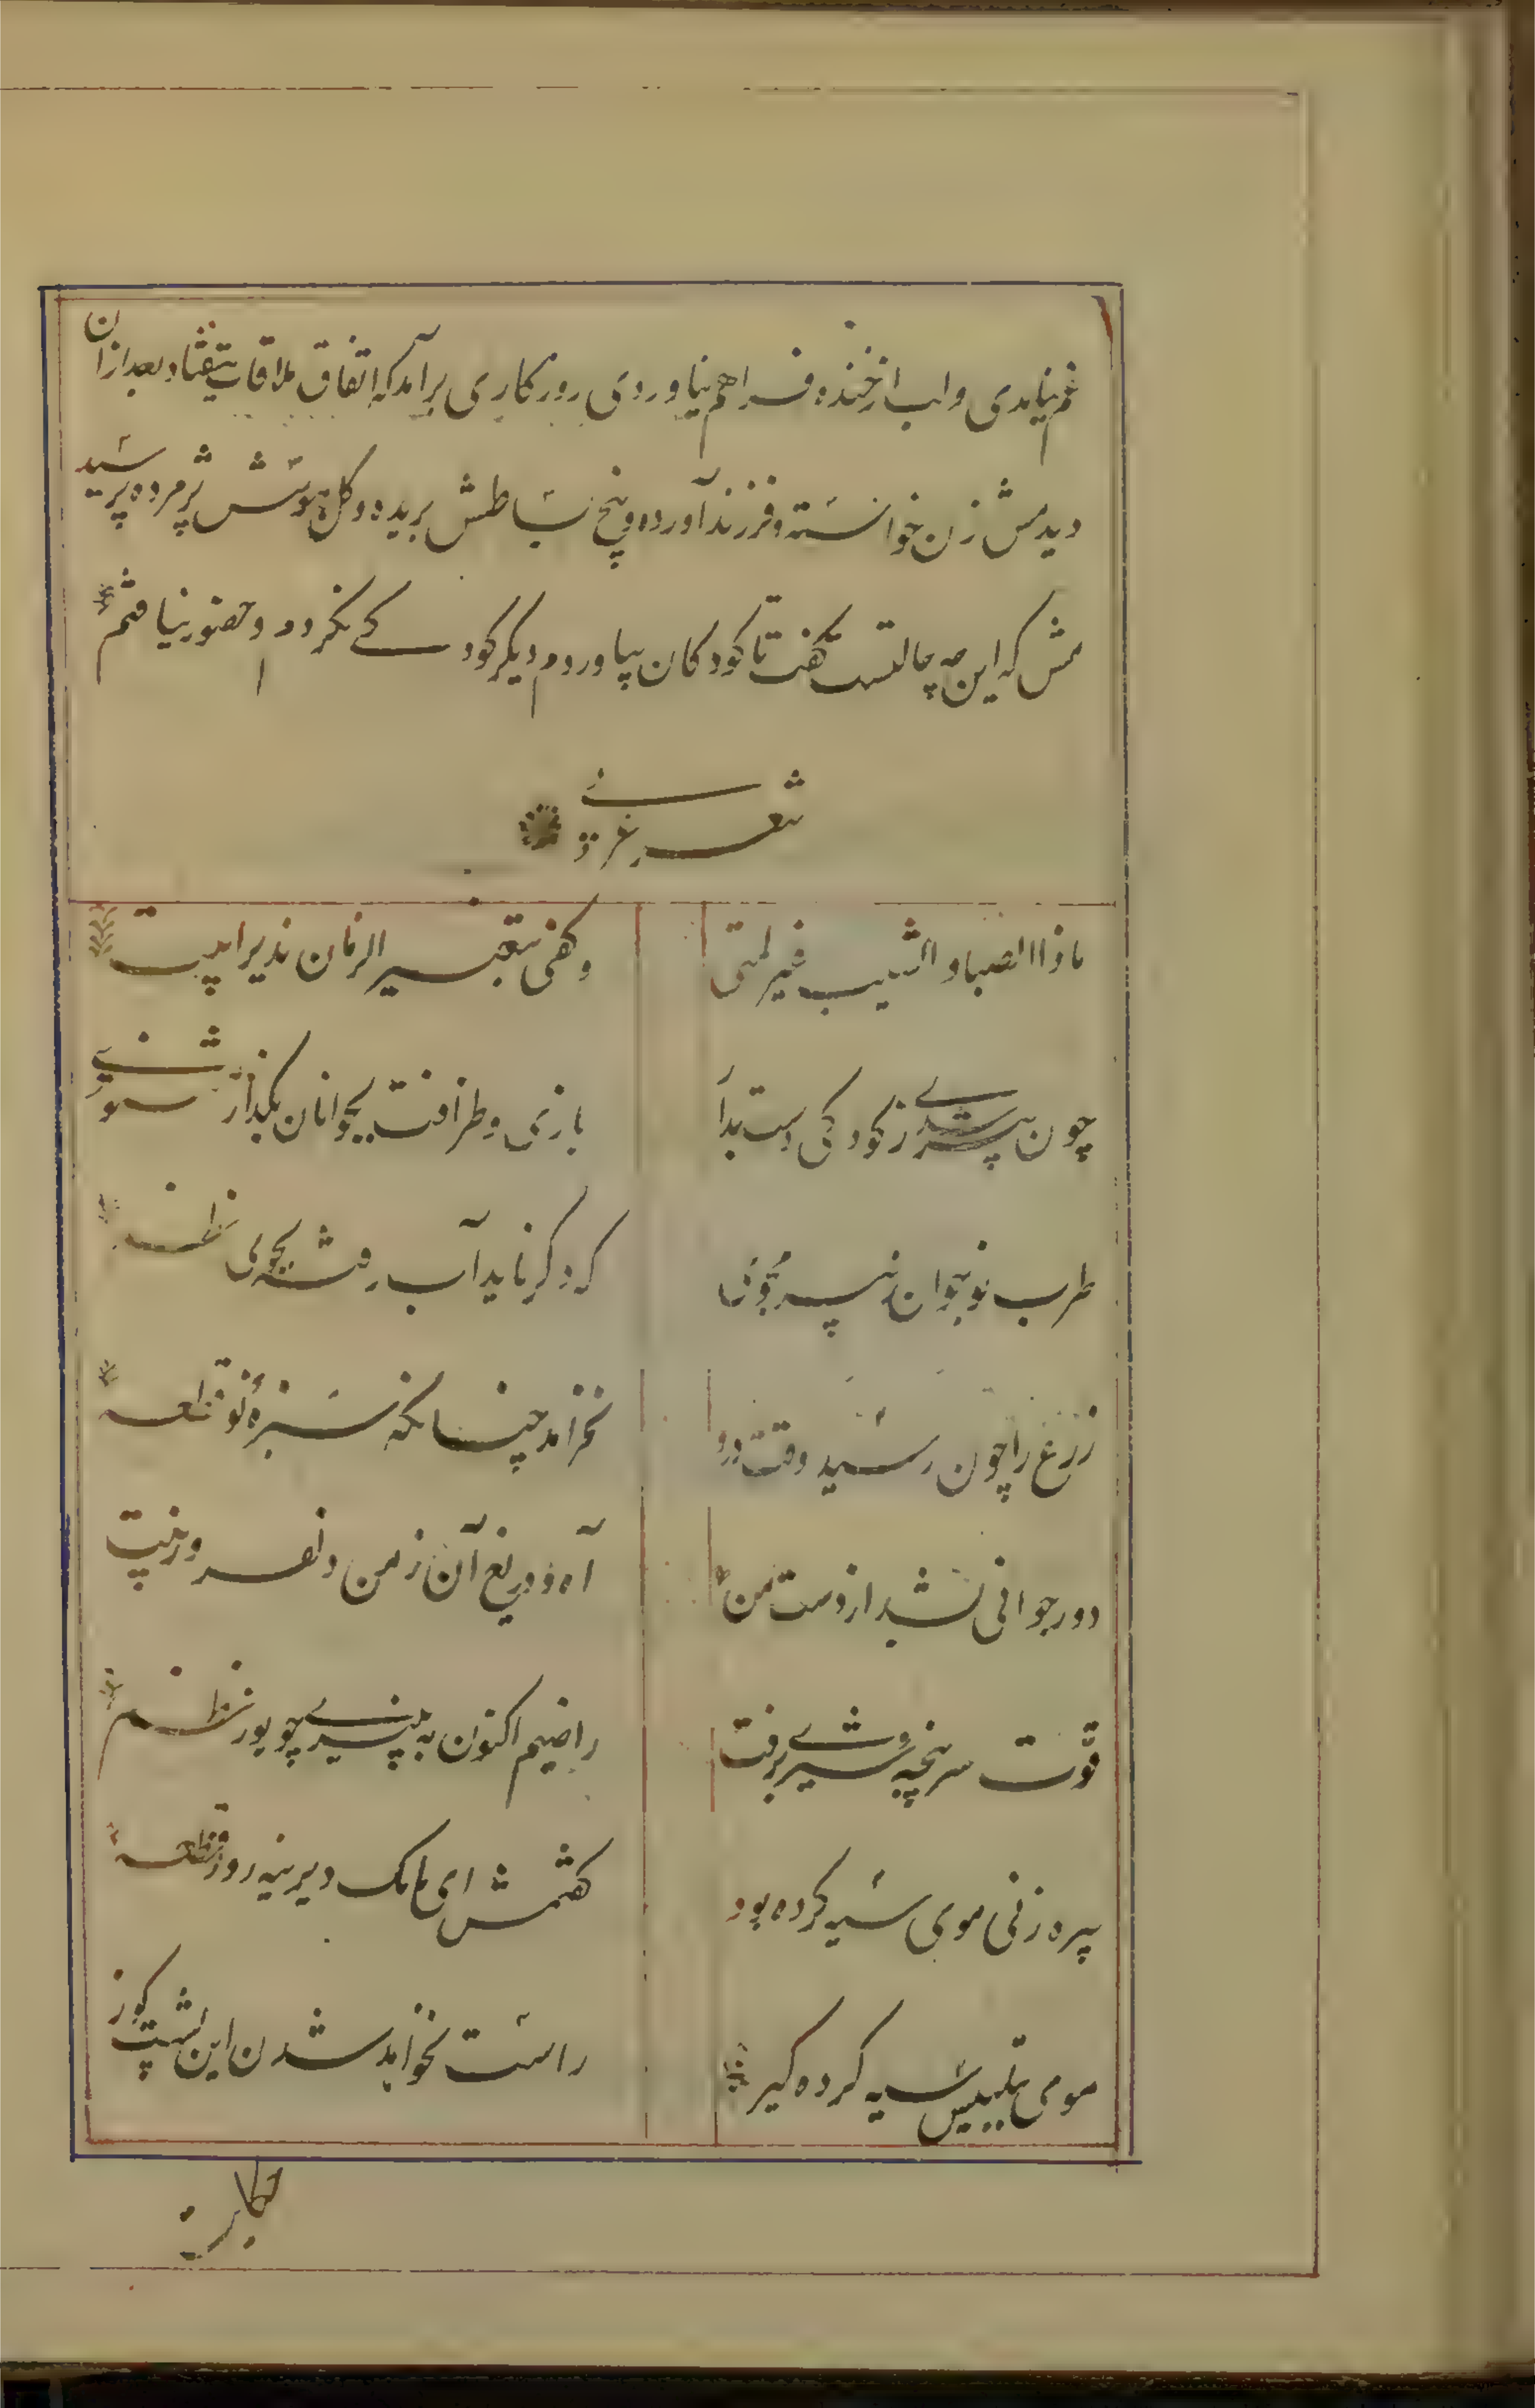 غم نیامدی و لب از خنده فراهم نیاوردی روزکاری برآمد که اتفاق ملاقات نیفتاد بعد ازان
دیدمش زن خواسته و فرزند آورده و بیخ نشاطش بریده و کل هوسش پژمرده پرسید
مش که این چه حالتست گفت تا کودکان بیاوردم دیگر کودکے نکردم و حضور نیافتم
شعر عربے
ماذا الصبا و الشیب غیر لمتی
وکفی بتغییر الزمان نذیرا بیت
چون پیر شدے ز کودکی دست بدار
بازی و ظرافت بجوانان بکذار مثنوے
طرب نوجوان ز پیر مجوی
که دکر ناید آب رفته بجوی نظم
زرع را چون رسید وقت درو
نخرامد چنانکه سبزهٔ نو قطعه
دور جوانی بشد از دست من
آه و دریغ آن زمن دلفروز بیت
قوت سرپنجه شیرے برفت
راضیم اکنون به پنیرے چو یوز نظم
پیره زنی موی سیه کرده بود
کفتمش ای مامک دیرینه روز قطعه
موی بتلبیس سیه کرده کیر
راست نخواهد شدن این پشت کوز
حکایت